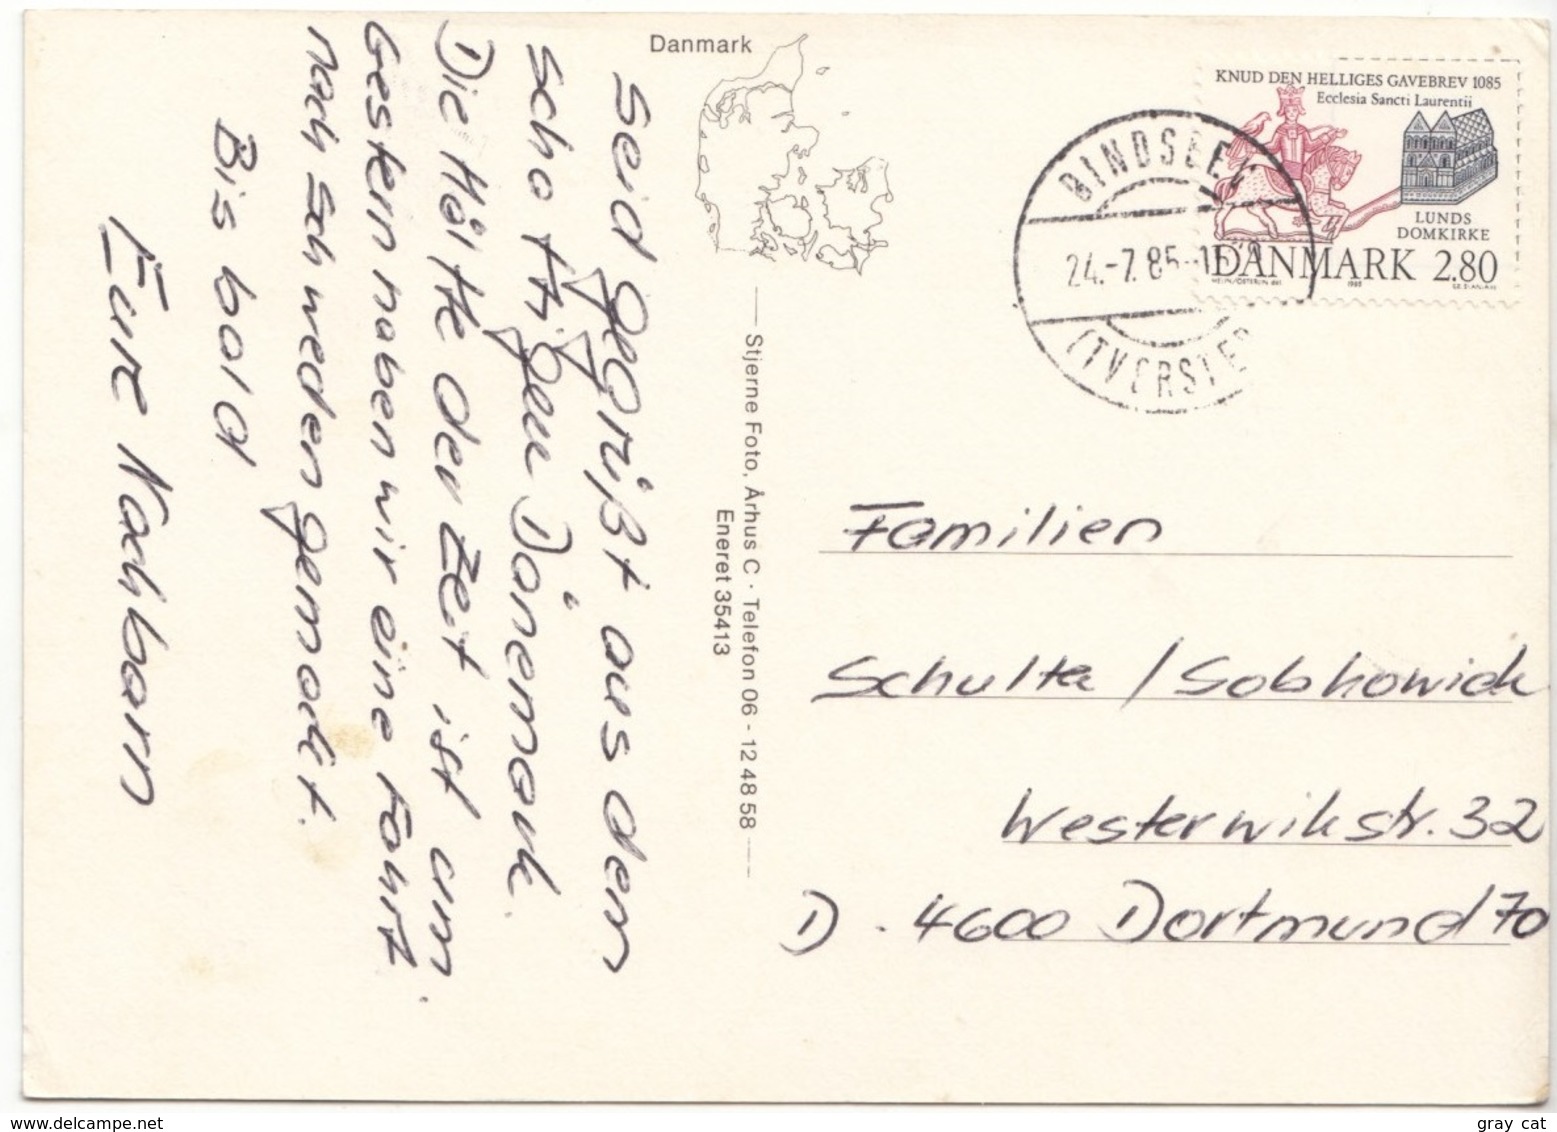 Danmark
Seid gegrüßt aus dem
schattigen Dänemark.
Die Hälfte der Zeit ist um.
Gestern haben wir eine Fahrt
nach Schweden gemacht.
Bis bald
Eure Nachbarn
Stjerne Foto, Århus C · Telefon 06 - 12 48 58
Eneret 35413
KNUD DEN HELLIGES GAVEBREV 1085
Ecclesia Sancti Laurentii
LUNDS
DOMKIRKE
DANMARK 2.80
1985
BINDSLEV
24.-7.85
(TVERSTED
Familien
Schulta / Sobkowick
Westerwikstr. 32
D. 4600 Dortmund 70
gray cat